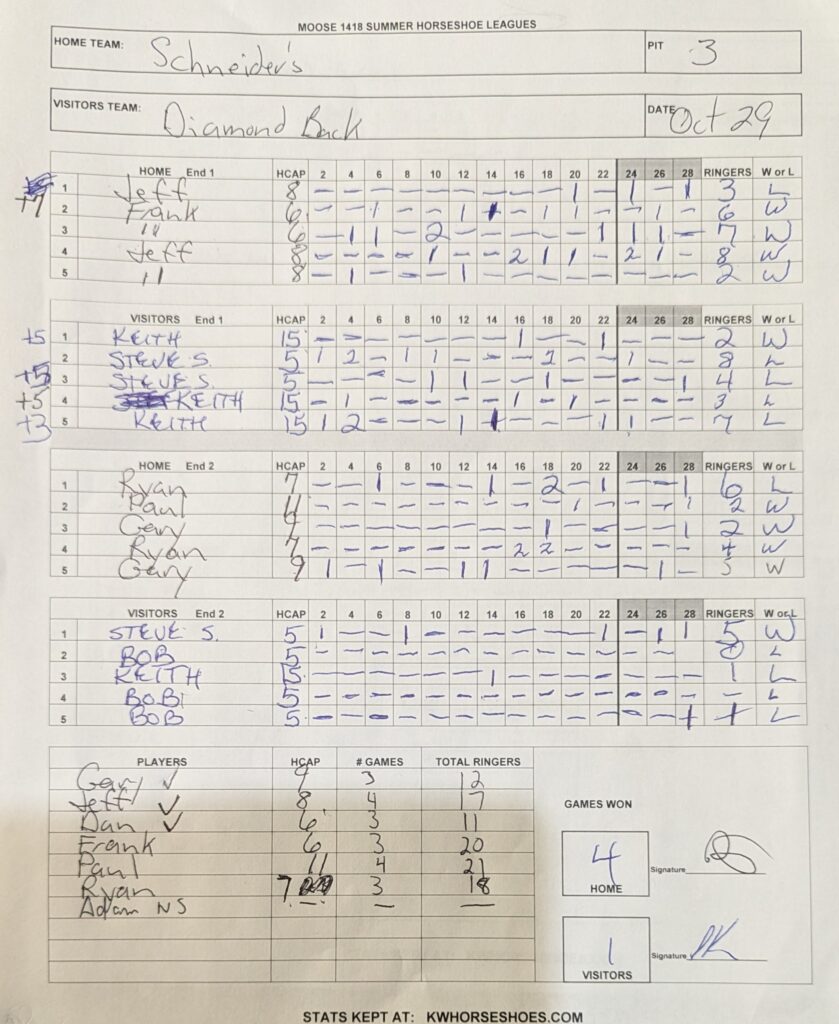 MOOSE 1418 SUMMER HORSESHOE LEAGUES
HOME TEAM: Schneider's PIT 3
VISITORS TEAM: Diamond Back DATE Oct 29
HOME End 1 HCAP 2 4 6 8 10 12 14 16 18 20 22 24 26 28 RINGERS W or L
1 Jeff 8 – – – – – – – – – 1 – 1 – 1 3 L
+7 2 Frank 6 – – 1 – – 1 1 – 1 1 – – 1 – 6 W
3 " 6 – 1 1 – 2 – – – – – 1 1 1 – 7 W
4 Jeff 8 – – – – 1 – – 2 1 1 – 2 1 – 8 W
5 " 8 – 1 – – – 1 – – – – – – – – 2 W
VISITORS End 1 HCAP 2 4 6 8 10 12 14 16 18 20 22 24 26 28 RINGERS W or L
+5 1 KEITH 15 – – – – – – – 1 – – 1 – – – 2 W
2 STEVE S. 5 1 2 – 1 1 – – – 2 – – 1 – – 8 L
+5 3 STEVE S. 5 – – – – 1 1 – – 1 – – – – 1 4 L
+5 4 KEITH 15 – 1 – – – – – 1 – 1 – – – – 3 L
+3 5 KEITH 15 1 2 – – – 1 1 – – – 1 1 – – 7 L
HOME End 2 HCAP 2 4 6 8 10 12 14 16 18 20 22 24 26 28 RINGERS W or L
1 Ryan 7 – – 1 – – – 1 – 2 – 1 – – 1 6 L
2 Paul 11 – – – – – – – – – 1 – – – 1 2 W
3 Gary 9 – – – – – – – – 1 – – – – 1 2 W
4 Ryan 7 – – – – – – – 2 2 – – – – – 4 W
5 Gary 9 1 – 1 – – 1 1 – – – – – 1 – 5 W
VISITORS End 2 HCAP 2 4 6 8 10 12 14 16 18 20 22 24 26 28 RINGERS W or L
1 STEVE S. 5 1 – – 1 – – – – – – 1 – 1 1 5 W
2 BOB 5 – – – – – – – – – – – – – L
3 KEITH 5 – – – – – – 1 – – – – – – – 1 L
4 BOB 5 – – – – – – – – – – – – – – – L
5 BOB 5 – – – – – – – – – – – – – 1 1 L
PLAYERS HCAP # GAMES TOTAL RINGERS
Gary ✓ 9 3 12
Jeff ✓ 8 4 17
Dan ✓ 6 3 11
Frank 6 3 20
Paul 11 4 21
Ryan 7 3 18
Adam NS – – —
GAMES WON
4 HOME Signature
1 VISITORS Signature
STATS KEPT AT: KWHORSESHOES.COM